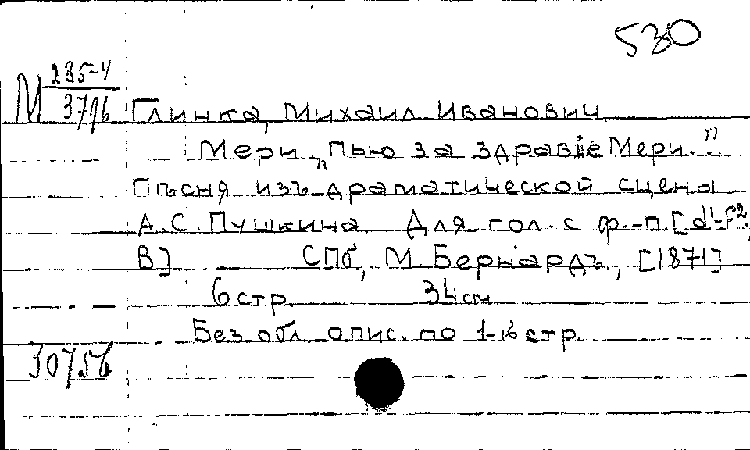 530
М 235-4
3796
Глинка, Михаил Иванович
Мери „Пью за здравіе Мери."
Пѣсня изъ драматической сцены
А. С. Пушкина. Для гол. с ф.-п. [d¹-f²,
B] СПб, М. Бернардъ, [1871]
6 стр. 34 см
Без обл. опис. по 1-й стр.